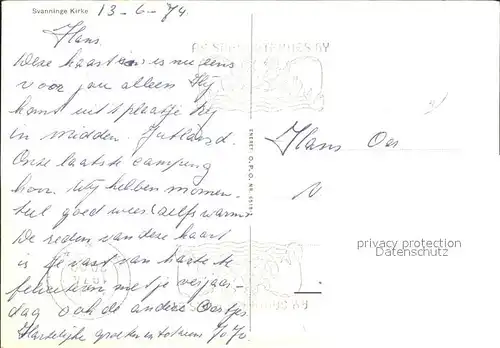 Svanninge Kirke
13-6-74.
Hans
Deze kaart is nu eens
voor jou alleen Hij
komt uit 't plaatje
in midden. Jutland.
Onze laatste camping
hoor. Wij hebben momen-
teel goed weer (zelfs warm
De reden van deze kaart
is je vast van harte te
feliciteren met je verjaar-
dag ook de andere Oertjes
Hartelijke groeten en tot ziens
Hans Oer
N
ENERET O.P.O. NR.
privacy protection
Datenschutz